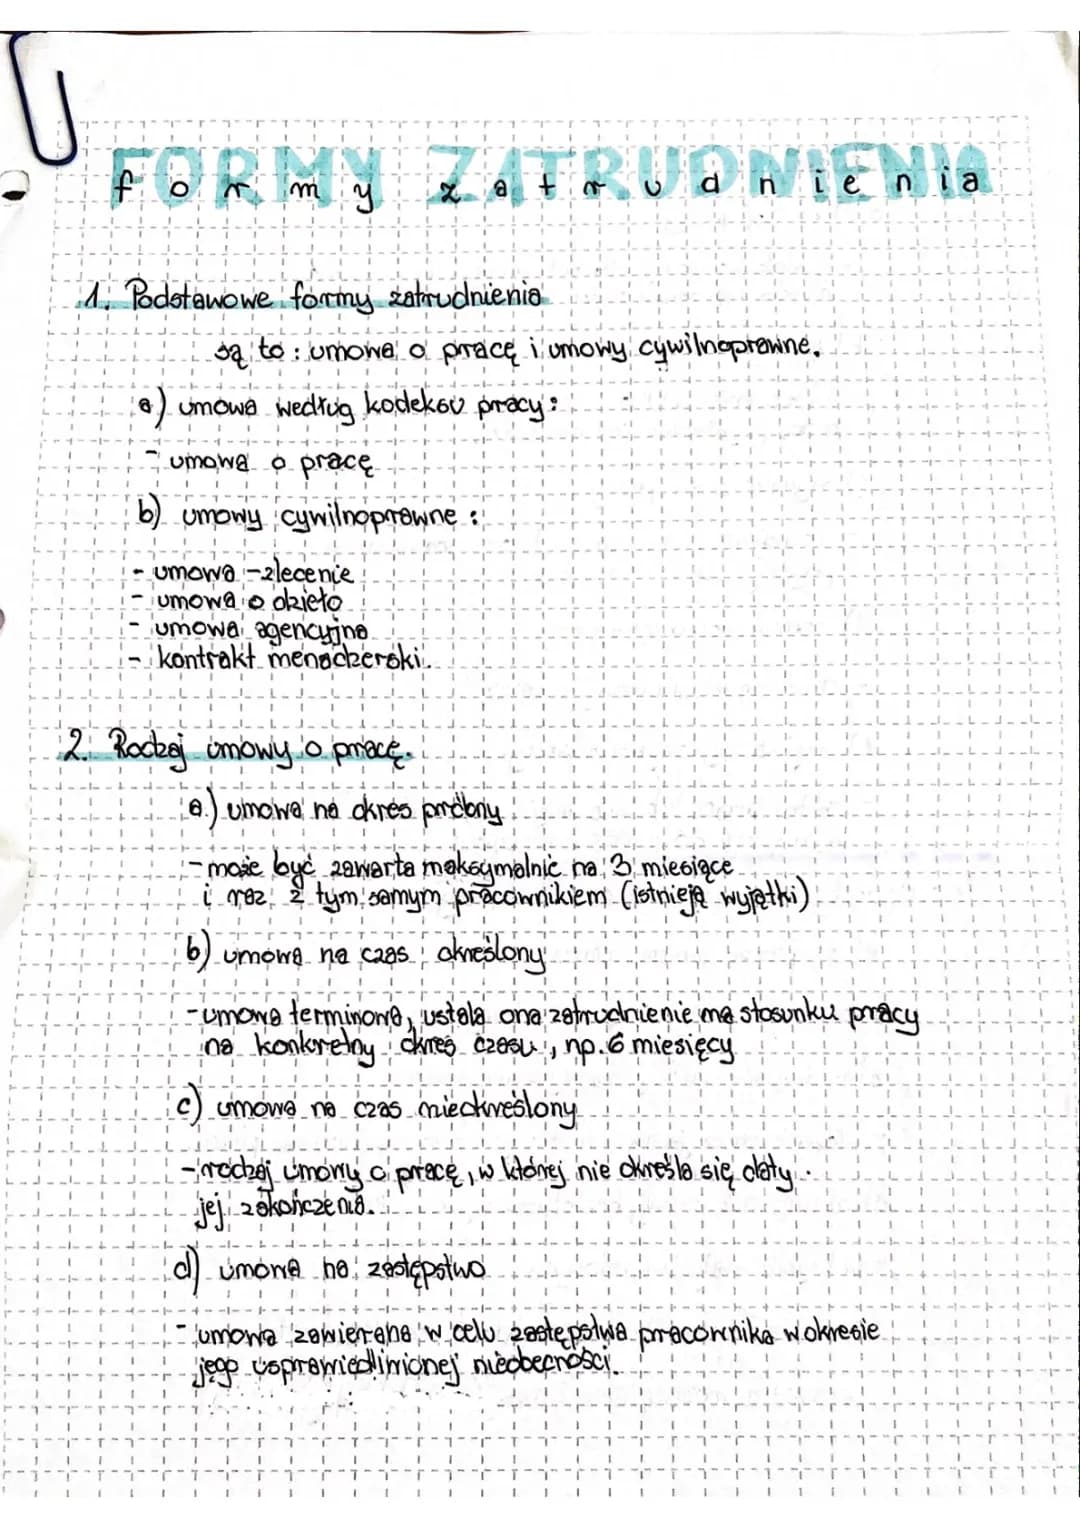 FORMY ZATRUDNIENIA
formy zatrudnienia
1. Podstawowe formy zatrudnienia
są to : umowa o pracę i umowy cywilnoprawne.
a) umowa według kodeksu pracy:
- umowa o pracę
b) umowy cywilnoprawne :
- umowa - zlecenie
- umowa o dzieło
- umowa agencyjna
- kontrakt menadżerski.
2. Rodzaj umowy o pracę.
a.) umowa na okres próbny
- może być zawarta maksymalnie na 3 miesiące
i raz z tym samym pracownikiem (istnieją wyjątki)
b) umowa na czas określony
- umowa terminowa, ustala ona zatrudnienie na stosunku pracy
na konkretny okres czasu, np. 6 miesięcy
c) umowa na czas nieokreślony
- rodzaj umowy o pracę, w której nie określa się daty
jej zakończenia.
d) umowa na zastępstwo
- umowa zawierana w celu zastępstwa pracownika w okresie
jego usprawiedliwionej nieobecności.